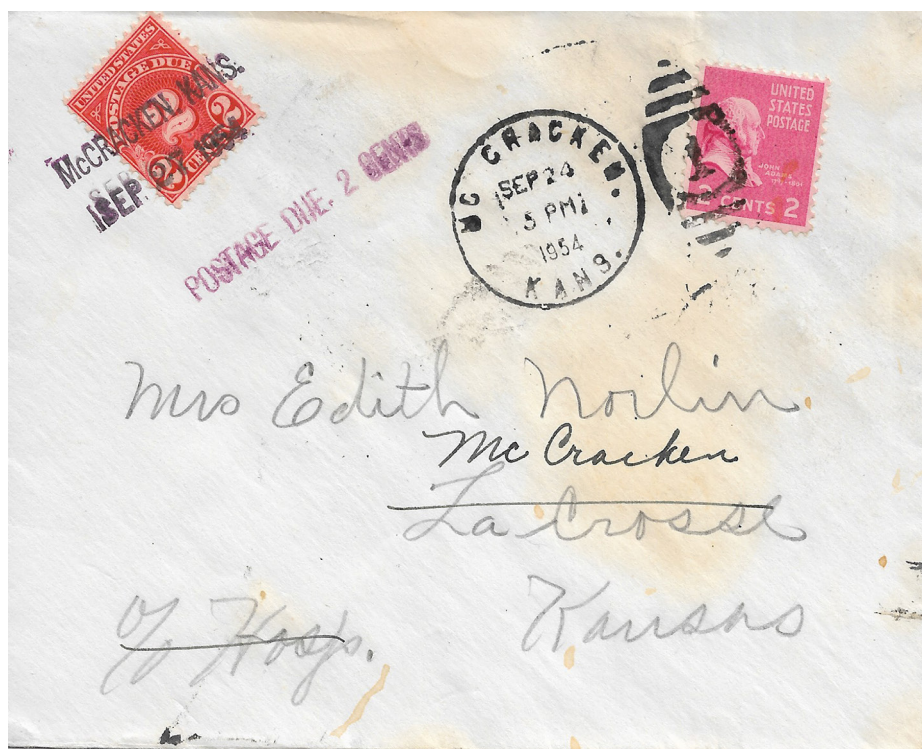 UNITED STATES
POSTAGE DUE
2
2
McCRACKEN KANS.
SEP 27 1954
POSTAGE DUE, 2 CENTS
MC CRACKEN.
SEP 24
5 PM
1954
KANS.
UNITED
STATES
POSTAGE
JOHN
ADAMS
2 CENTS 2
Mrs Edith Norlin
McCracken
La Crosse
Kansas
c/o Hosp.